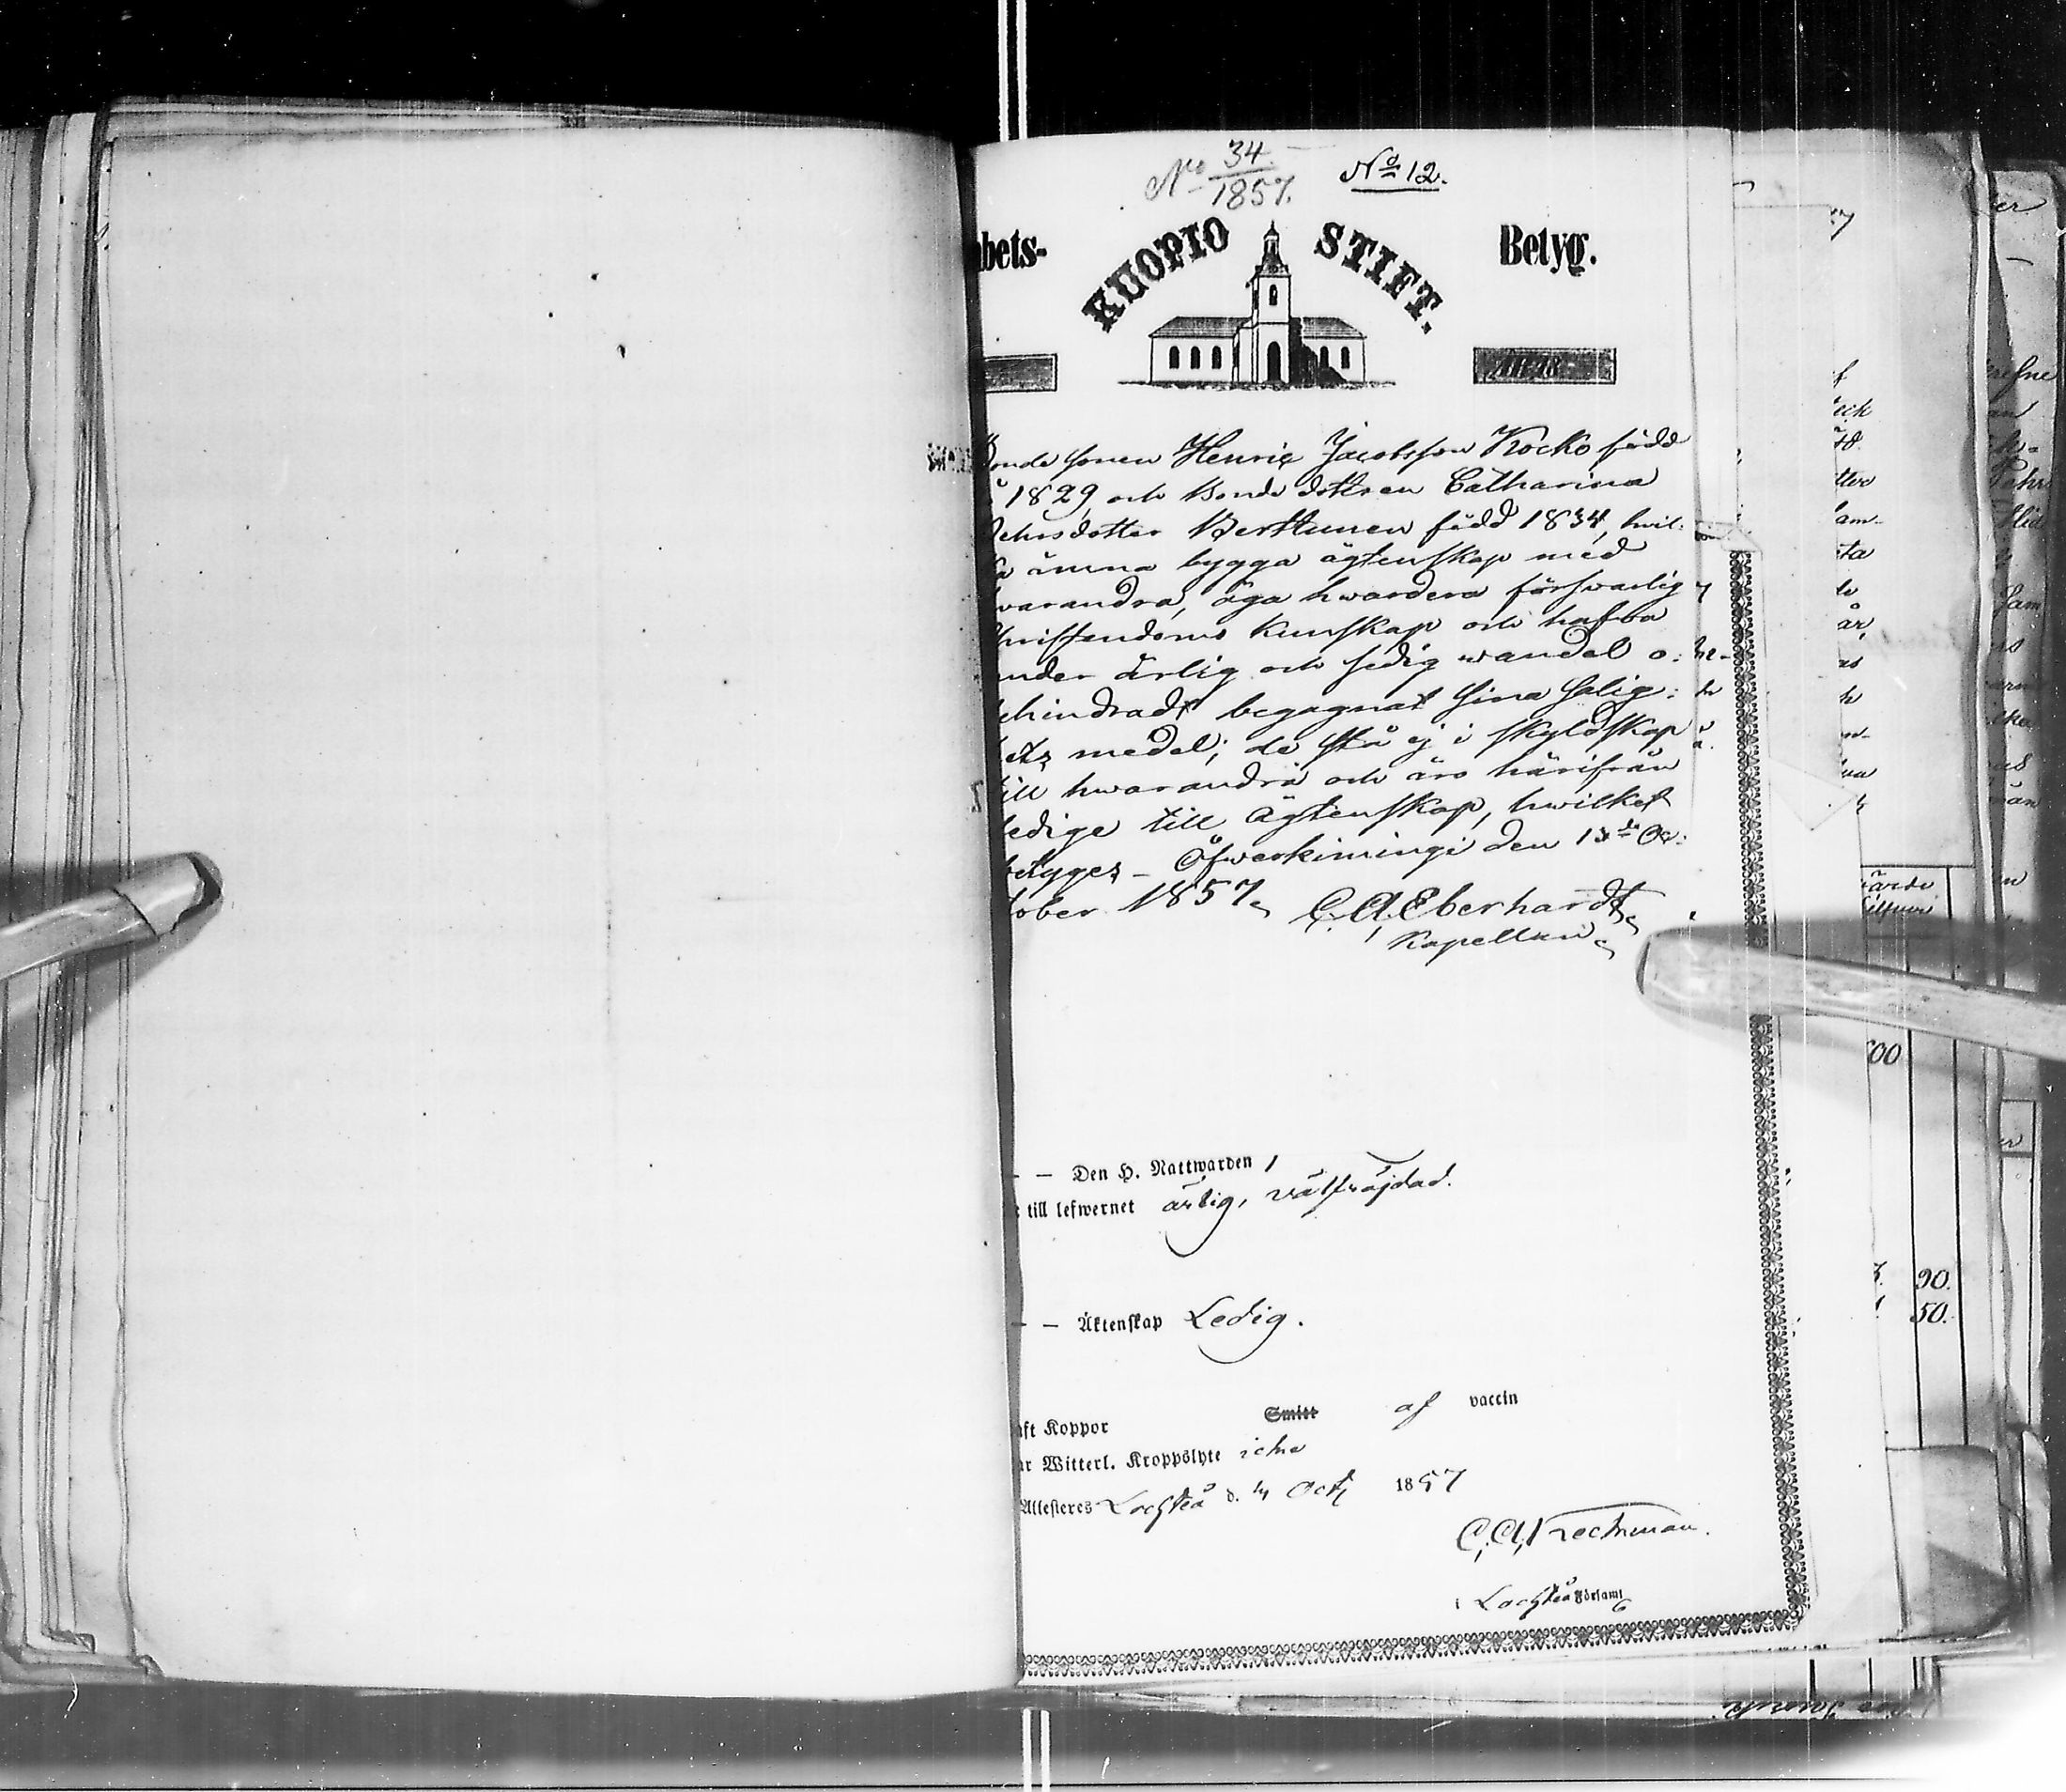 No 34/1857. No 12.
KUOPIO STIFT. Betyg.
Bondesonen Henric Jacobsson Kocko född
1829, och Bondedottren Catharina
Bertunen född 1834, hwil-
ka ämna bygga ägtenskap med
hwarandra, äga hwardera försvarlig
Christendoms kunskap och hafva
under ärlig och sedig wandel o-
behindradt begagnat sina salig-
hets medel; de stå ej i skyldskap
till hwarandra och äro härifrån
ledige till ägtenskap, hwilket
betyges – Öfwerkiimingi den 13de Oc-
tober 1857. C. A. Eberhardt
Kapellan
– – Den H. Nattwarden
till lefwernet ärlig, välfräjdad.
– – Äktenskap Ledig.
aft Koppor Smitt af vaccin
ar Witterl. Kroppslyte icke
Attesteras Lochteå d. Oct 1857
Lochteå Församl
00
90.
50.